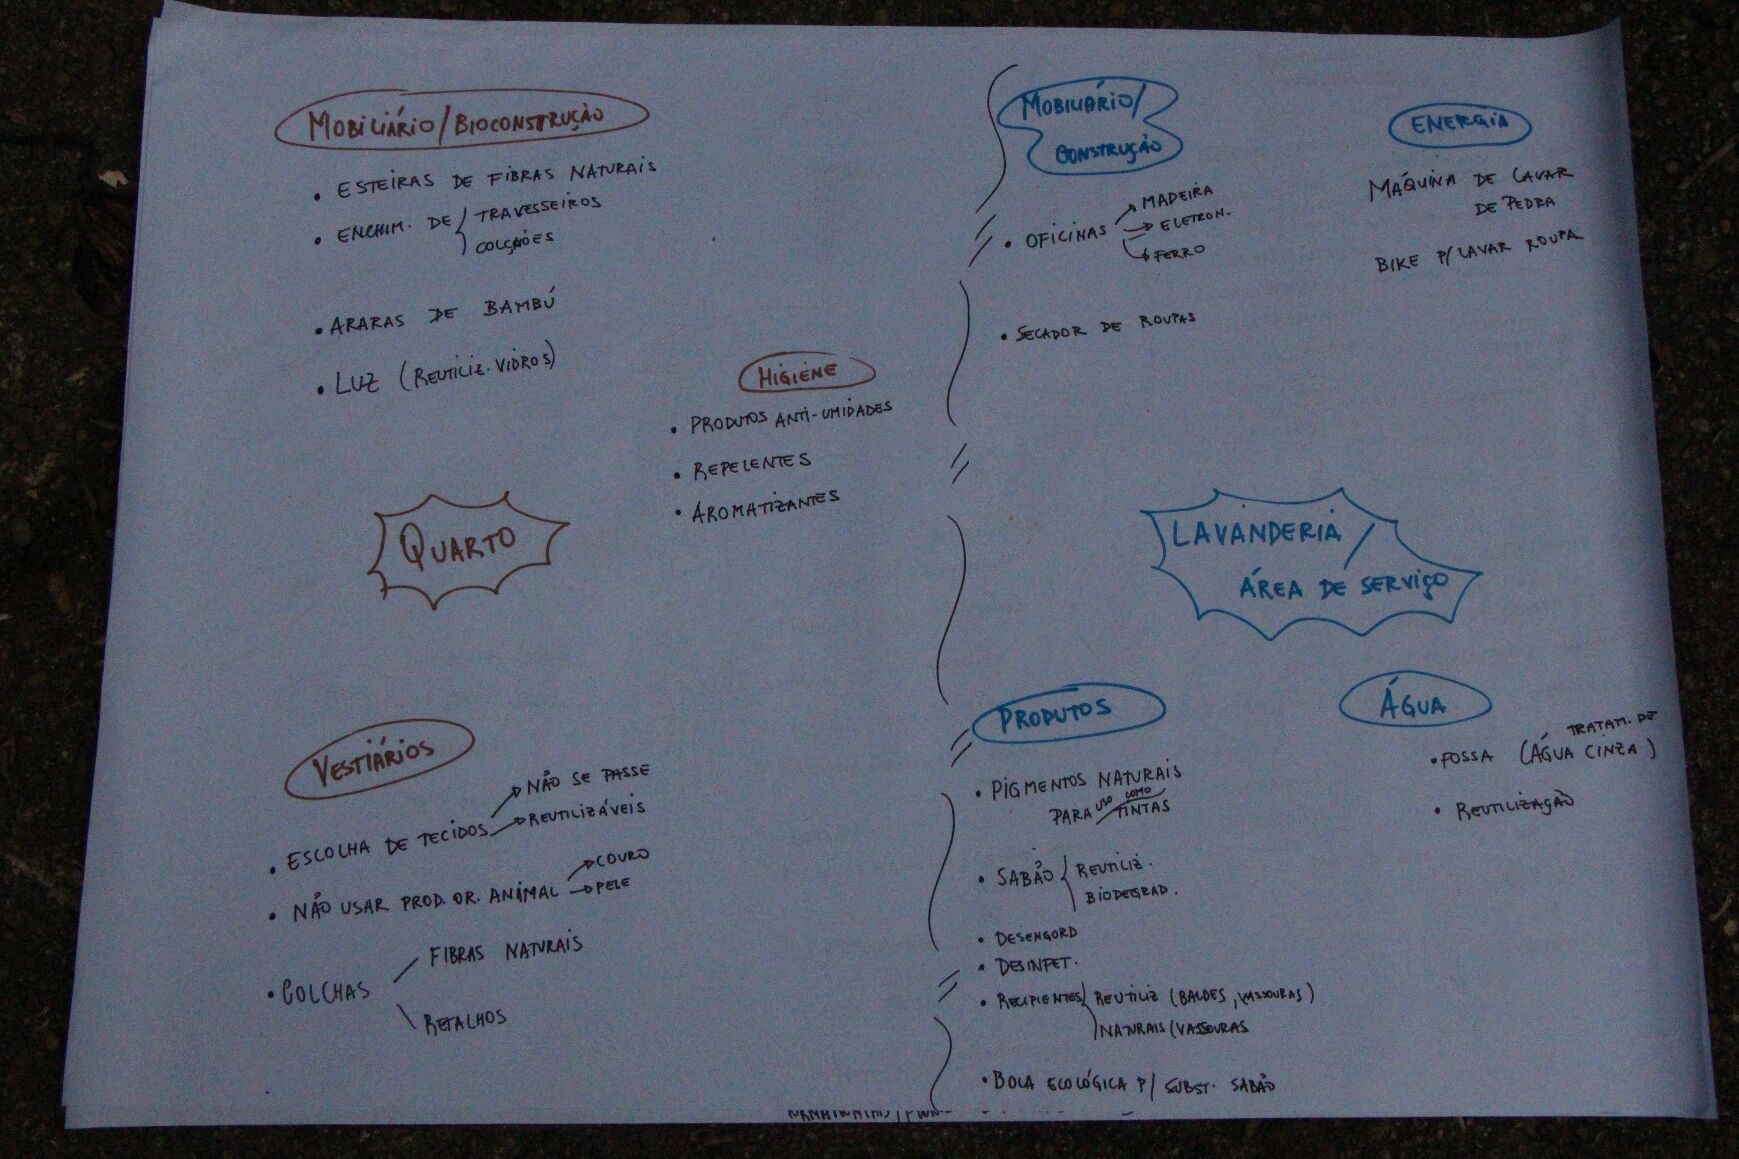 MOBILIÁRIO/BIOCONSTRUÇÃO
• ESTEIRAS DE FIBRAS NATURAIS
• ENCHIM. DE TRAVESSEIROS
COLCHÕES
• ARARAS DE BAMBÚ
• LUZ (REUTILIZ. VIDROS)
HIGIENE
• PRODUTOS ANTI-UMIDADES
• REPELENTES
• AROMATIZANTES
QUARTO
VESTIÁRIOS
• ESCOLHA DE TECIDOS → NÃO SE PASSE
→ REUTILIZÁVEIS
• NÃO USAR PROD. OR. ANIMAL → COURO
→ PELE
• COLCHAS FIBRAS NATURAIS
RETALHOS
MOBILIÁRIO/
CONSTRUÇÃO
• OFICINAS → MADEIRA
→ ELETRON.
→ FERRO
• SECADOR DE ROUPAS
ENERGIA
MÁQUINA DE LAVAR
DE PEDRA
BIKE P/ LAVAR ROUPA
LAVANDERIA/
ÁREA DE SERVIÇO
PRODUTOS
• PIGMENTOS NATURAIS
PARA USO COMO TINTAS
• SABÃO REUTILIZ.
BIODEGRAD.
• DESENGORD
• DESINFET.
• RECIPIENTES REUTILIZ (BALDES, VASSOURAS)
NATURAIS (VASSOURAS
• BOLA ECOLÓGICA P/ SUBST. SABÃO
ÁGUA
• FOSSA (TRATAM. DE ÁGUA CINZA)
• REUTILIZAÇÃO